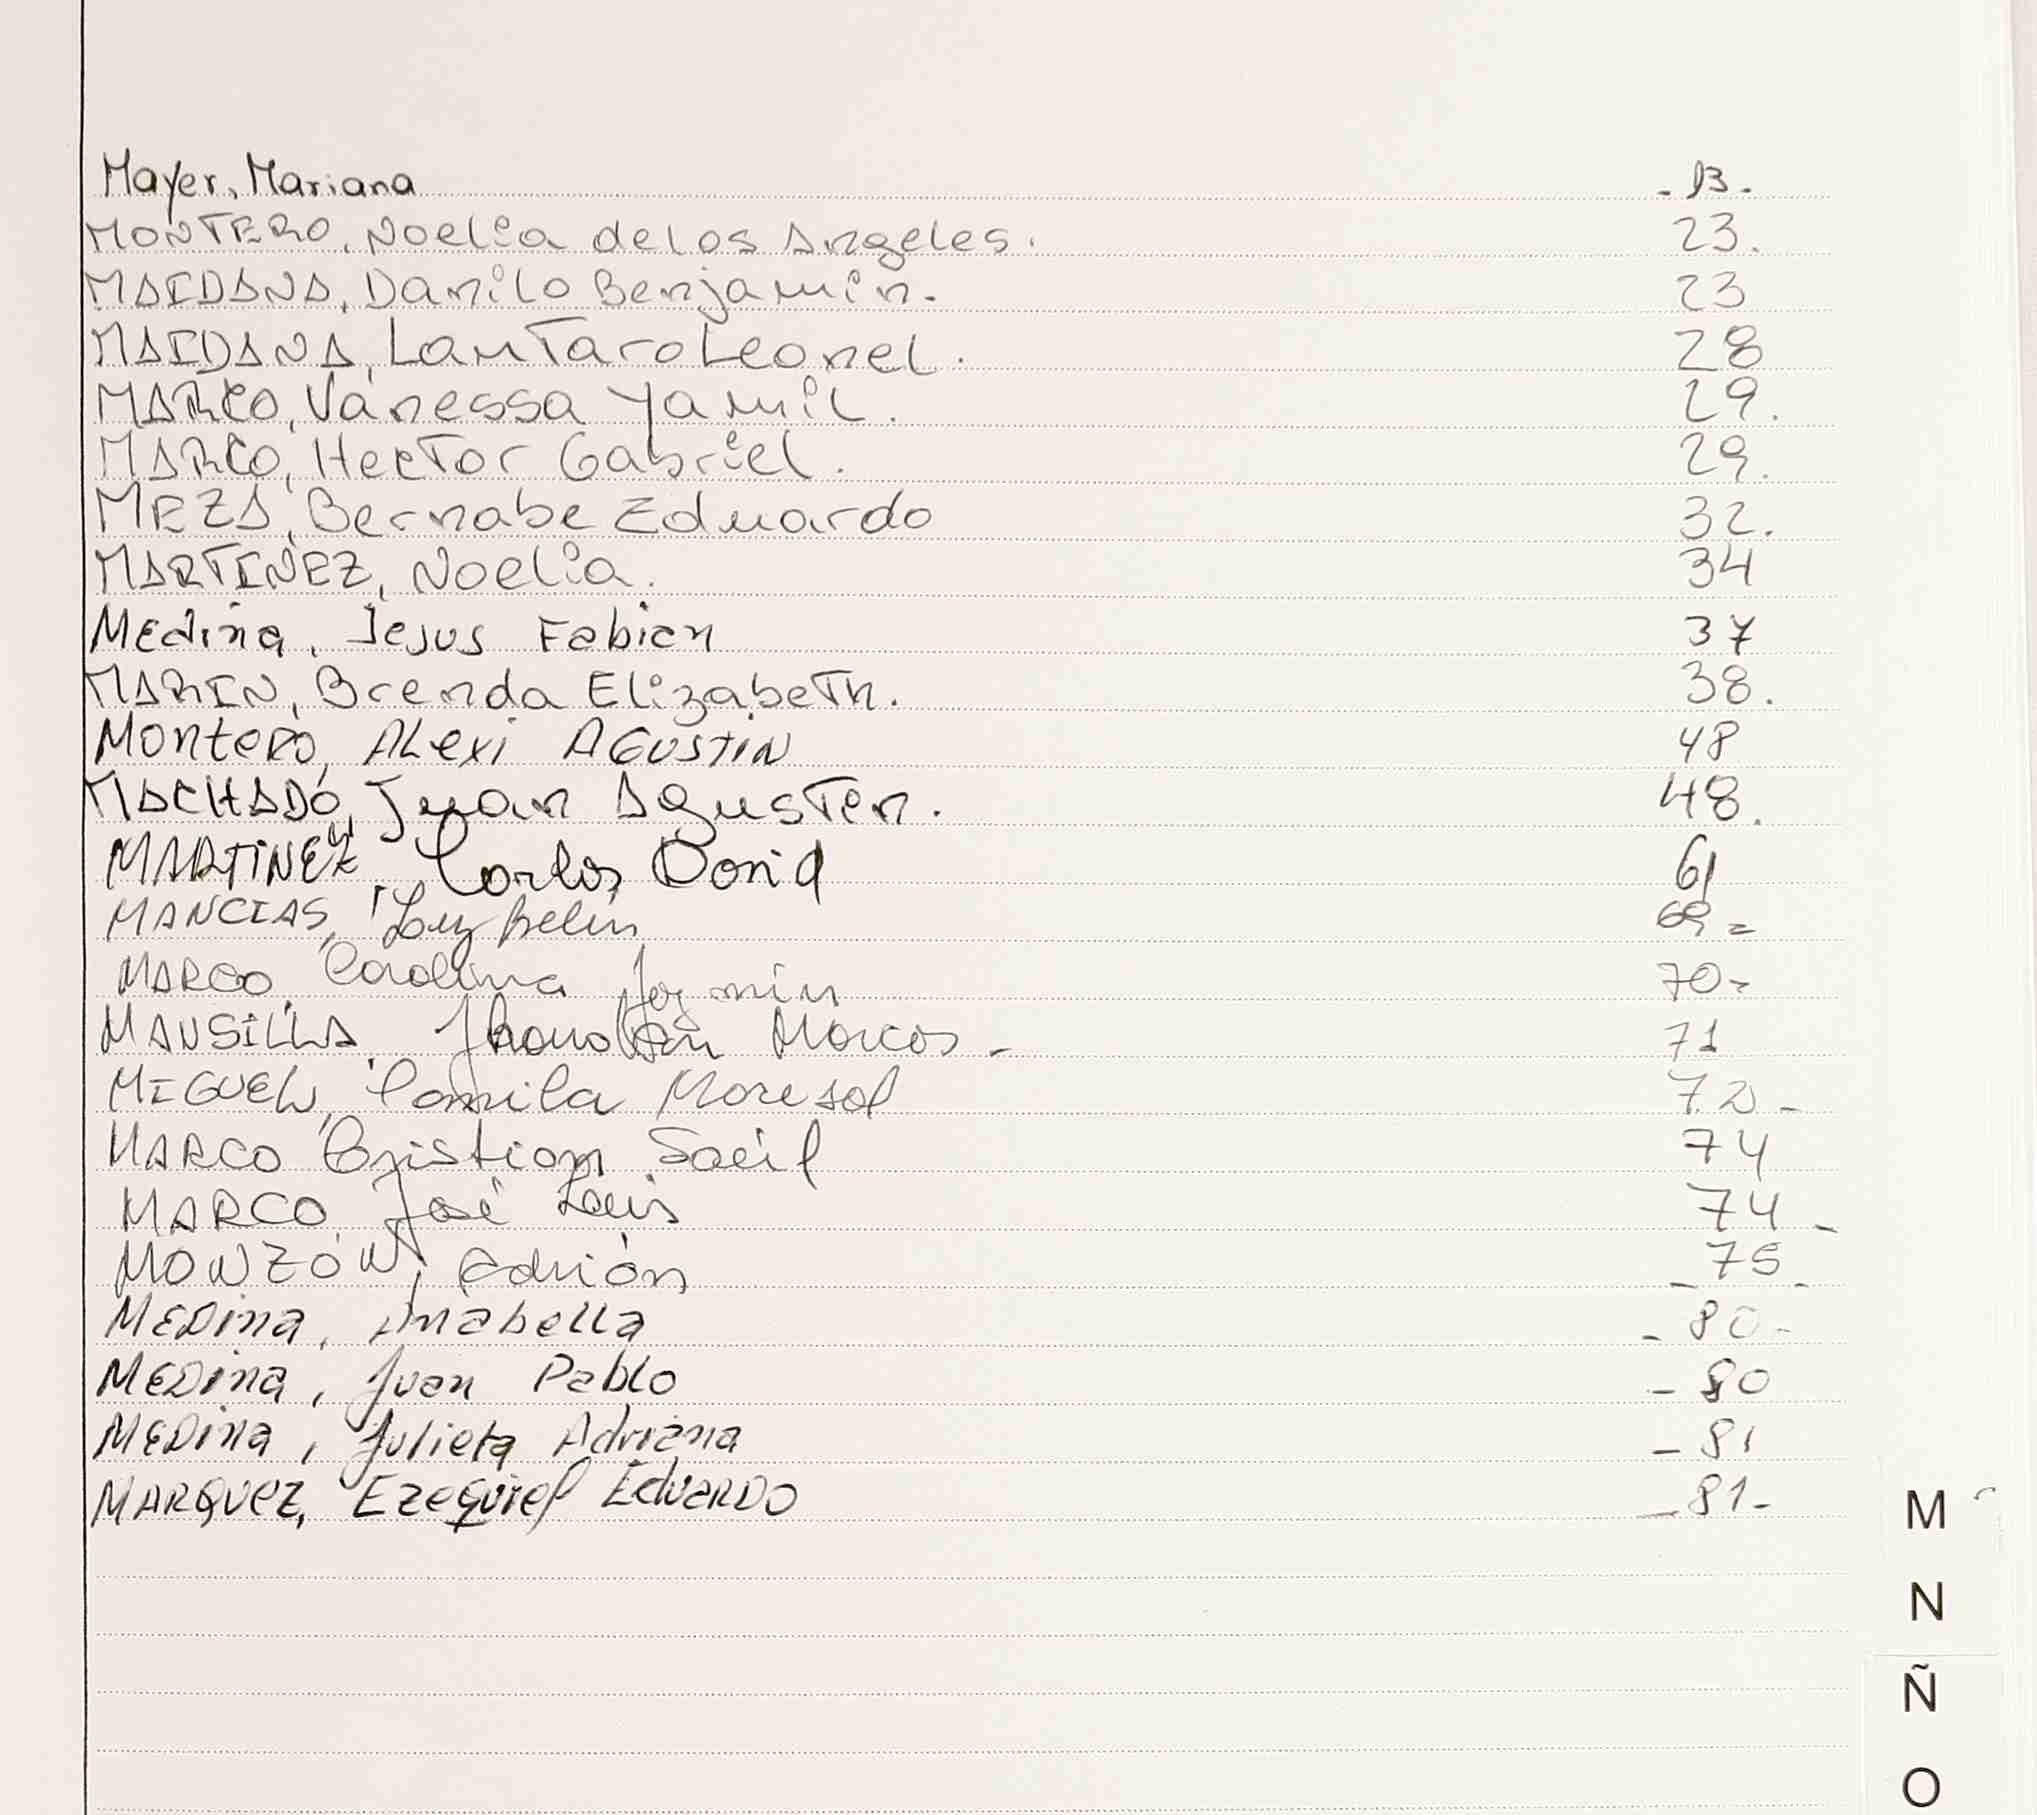 Mayer, Mariana - 13 -
MONTERO, Noelia de los Angeles. 23.
MAIDANA, Danilo Benjamin. 23
MAIDANA, Lautaro Leonel. 28
MARCO, Vanessa Yamil. 29.
MARCO, Hector Gabriel. 29.
MEZA, Bernabe Eduardo 32.
MARTINEZ, Noelia. 34
Medina, Jesus Fabian 37
MARIN, Brenda Elizabeth. 38.
Montero, Alexi Agustin 48
MACHADO, Juan Agustin. 48.
MARTINEZ, Carlos David 61
MANCIAS, Luz Belén 69 =
MARCO, Carolina Jazmin 70 -
MANSILLA, Jhonatan Marcos - 71
MIGUEL, Camila Marisol 72 -
MARCO Cristian Saúl 74
MARCO, José Luis 74 -
MONZÓN, Adrián - 75 -
MEDina, Anabella - 80 -
MEDina, Juan Pablo - 80
MEDina, Julieta Adriana - 81
MARQUEZ, Ezequiel EduARDO - 81 -
M
N
Ñ
O